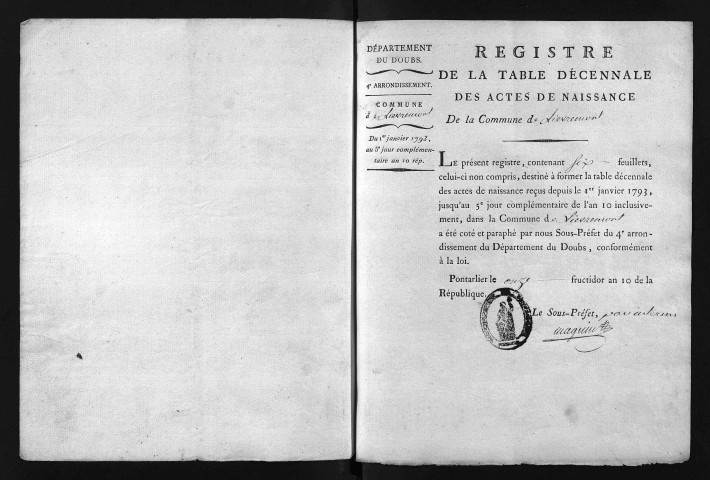 DÉPARTEMENT
DU DOUBS.
4e ARRONDISSEMENT.
COMMUNE
de Lievremont
Du 1er janvier 1793,
au 5e jour complémen-
taire an 10 rép.
REGISTRE
DE LA TABLE DÉCENNALE
DES ACTES DE NAISSANCE
De la Commune de Lievremont
LE présent registre, contenant six feuillets,
celui-ci non compris, destiné à former la table décennale
des actes de naissance reçus depuis le 1er janvier 1793,
jusqu'au 5e jour complémentaire de l'an 10 inclusive-
ment, dans la Commune de Lievremont
a été coté et paraphé par nous Sous-Préfet du 4e arron-
dissement du Département du Doubs, conformément
à la loi.
Pontarlier le onze fructidor an 10 de la
République.
Le Sous-Préfet, par interim